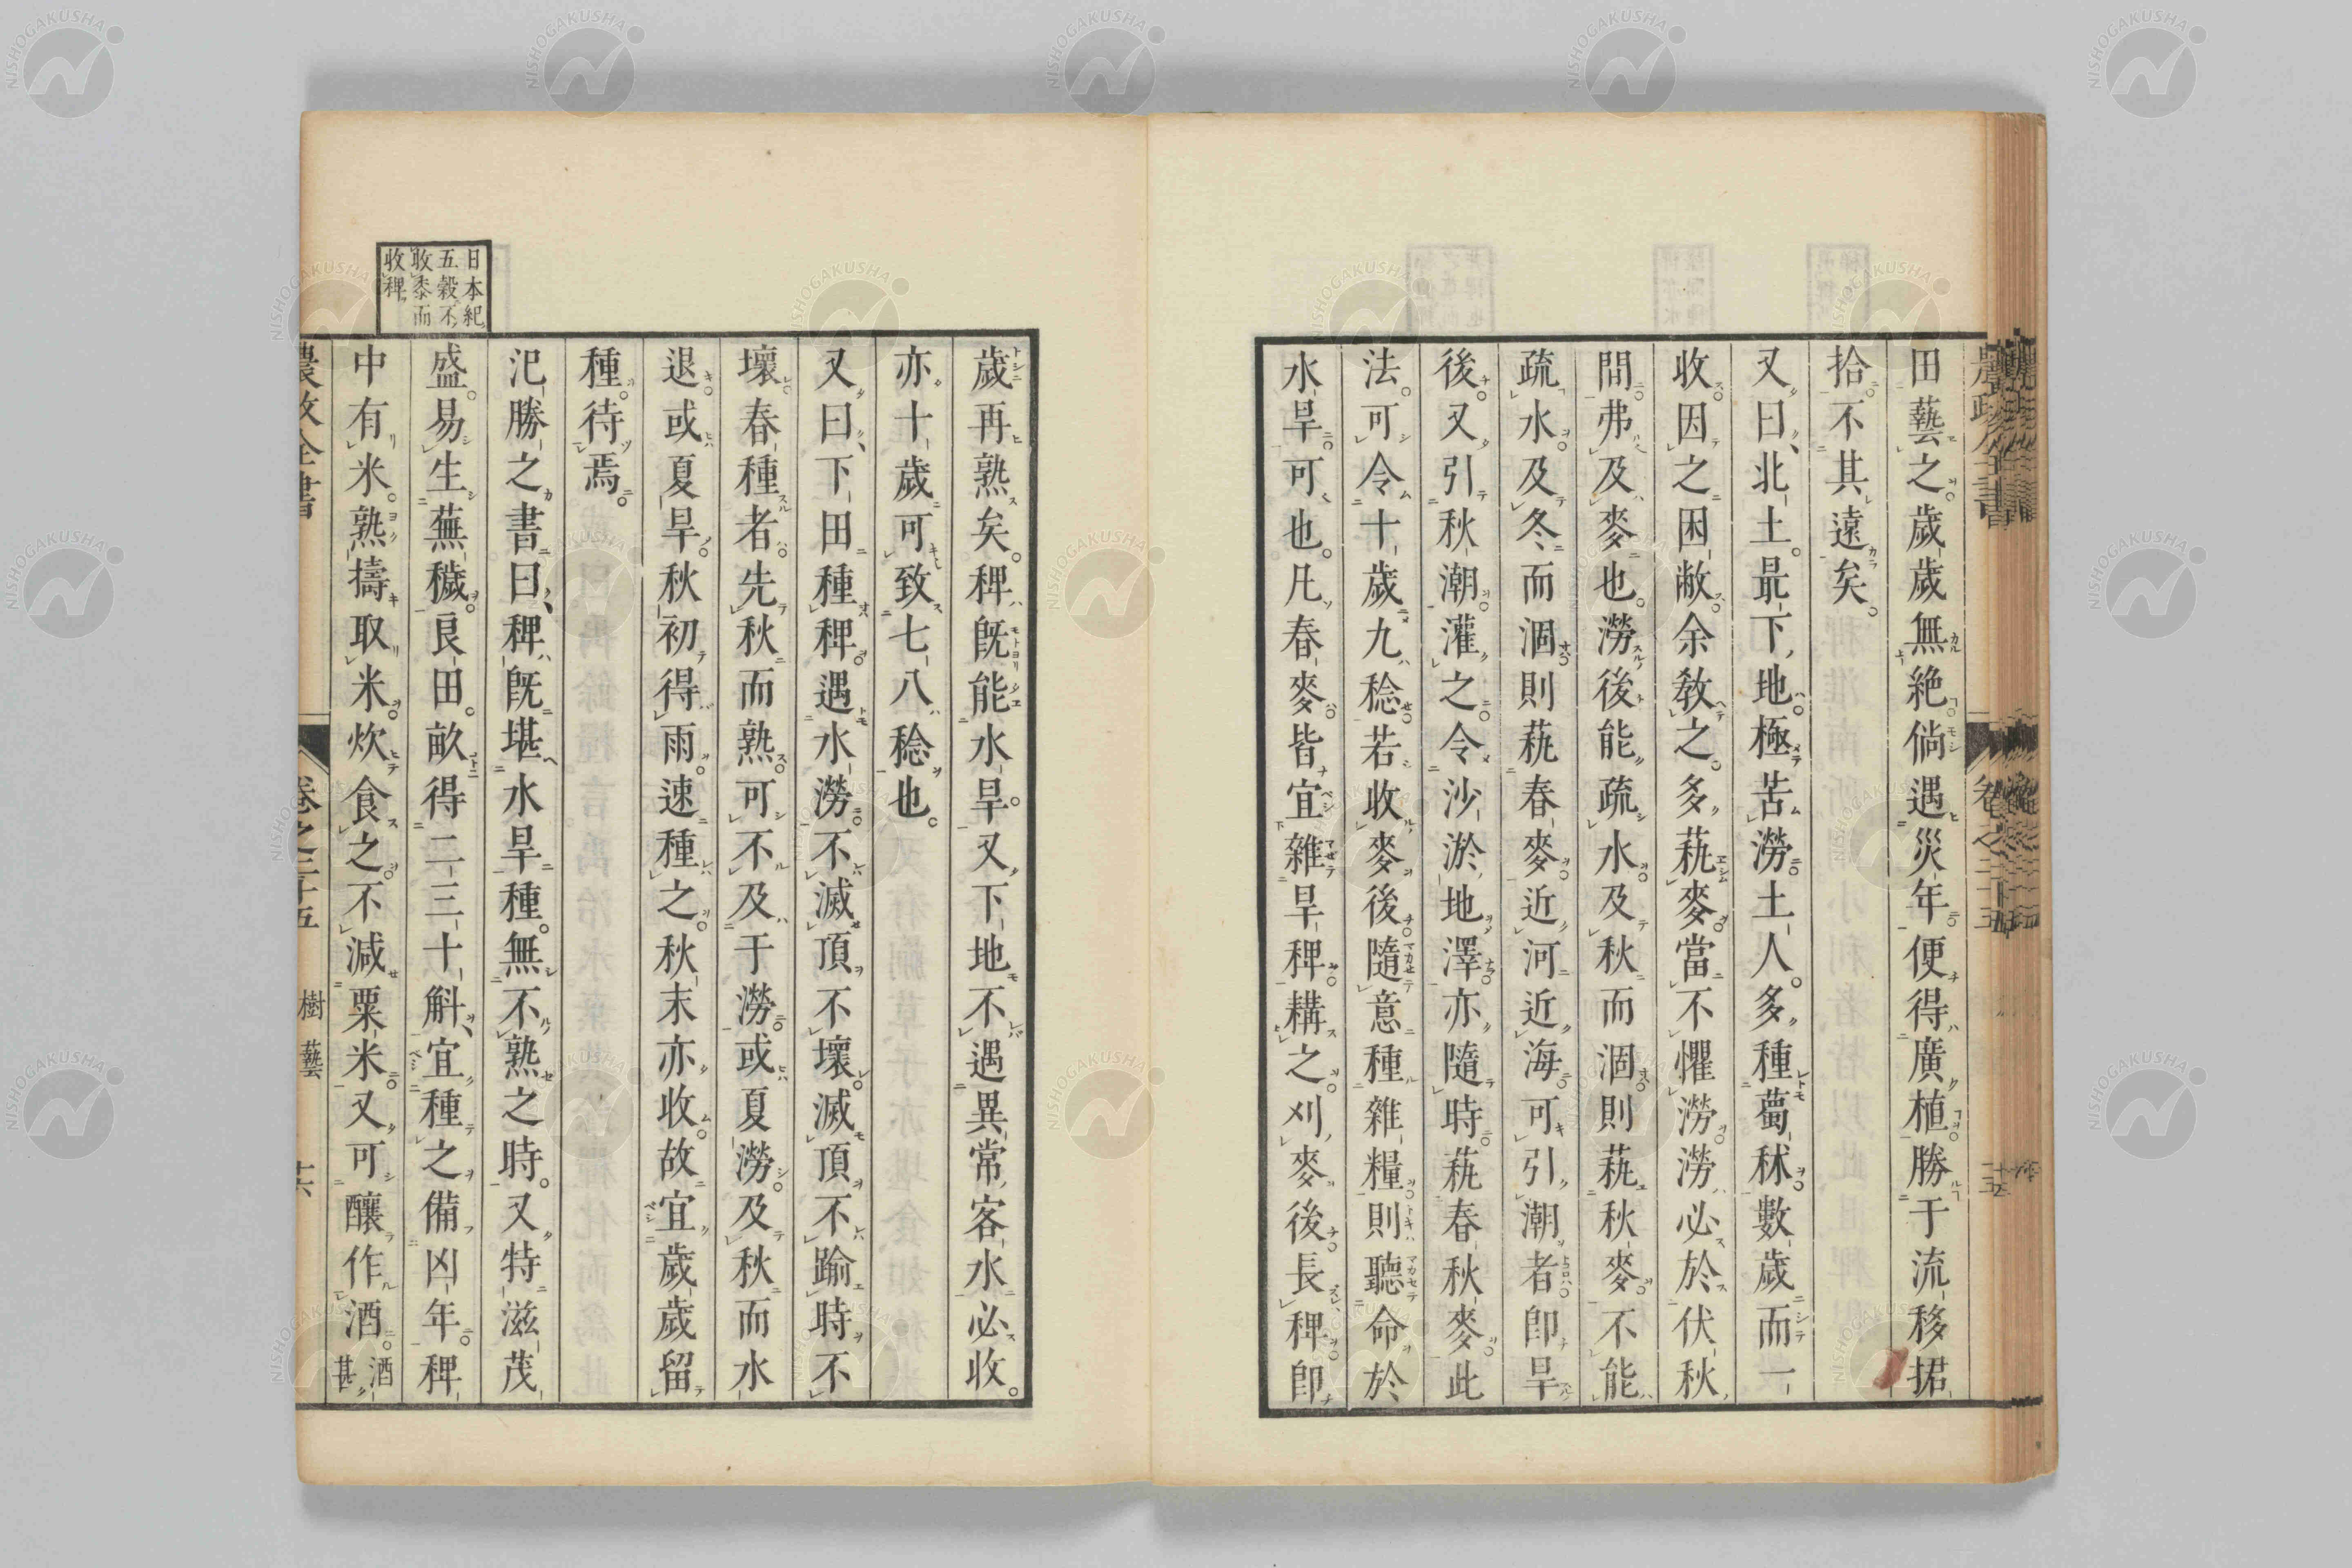 田藝之。歲歲無絕。倘遇災年。便得廣植。勝于流移捃
拾。不其遠矣。
又曰、北土。最下地。極苦澇。土人。多種葛秫。數歲而一
收。因之困敝。余敎之。多蓺麥。當不懼澇。澇必於伏秋
間。弗及麥也。澇後能疏水。及秋而涸。則蓺秋麥。不能
疏水。及冬而涸。則蓺春麥。近河近海。可引潮者。卽旱
後。又引秋潮。灌之。令沙淤地澤。亦隨時。蓺春秋麥。此
法。可令十歲九稔。若收麥後。隨意種雜糧。則聽命於
水旱。可也。凡春麥。皆宜雜旱稗。耩之。刈麥後。長稗。卽
歲再熟矣。稗旣能水旱。又下地不遇異常客水必收。
亦十歲可致七八稔也。
又曰、下田種稗。遇水澇。不滅頂不壞。滅頂不踰時不
壞。春種者。先秋而熟。可不及于澇。或夏澇。及秋而水
退。或夏旱。秋初得雨。速種之。秋末亦收。故宜歲歲留
種。待焉。
氾勝之書曰、稗旣堪水旱。種。無不熟之時。又特滋茂
盛。易生蕪穢。良田。畝得二三十斛、宜種之備凶年。稗
中有米。熟擣取米。炊食之。不減粟米。又可釀作酒。酒甚
日本紀
五穀不
收黍而
收稗
農政全書
卷之二十五
樹藝
十六